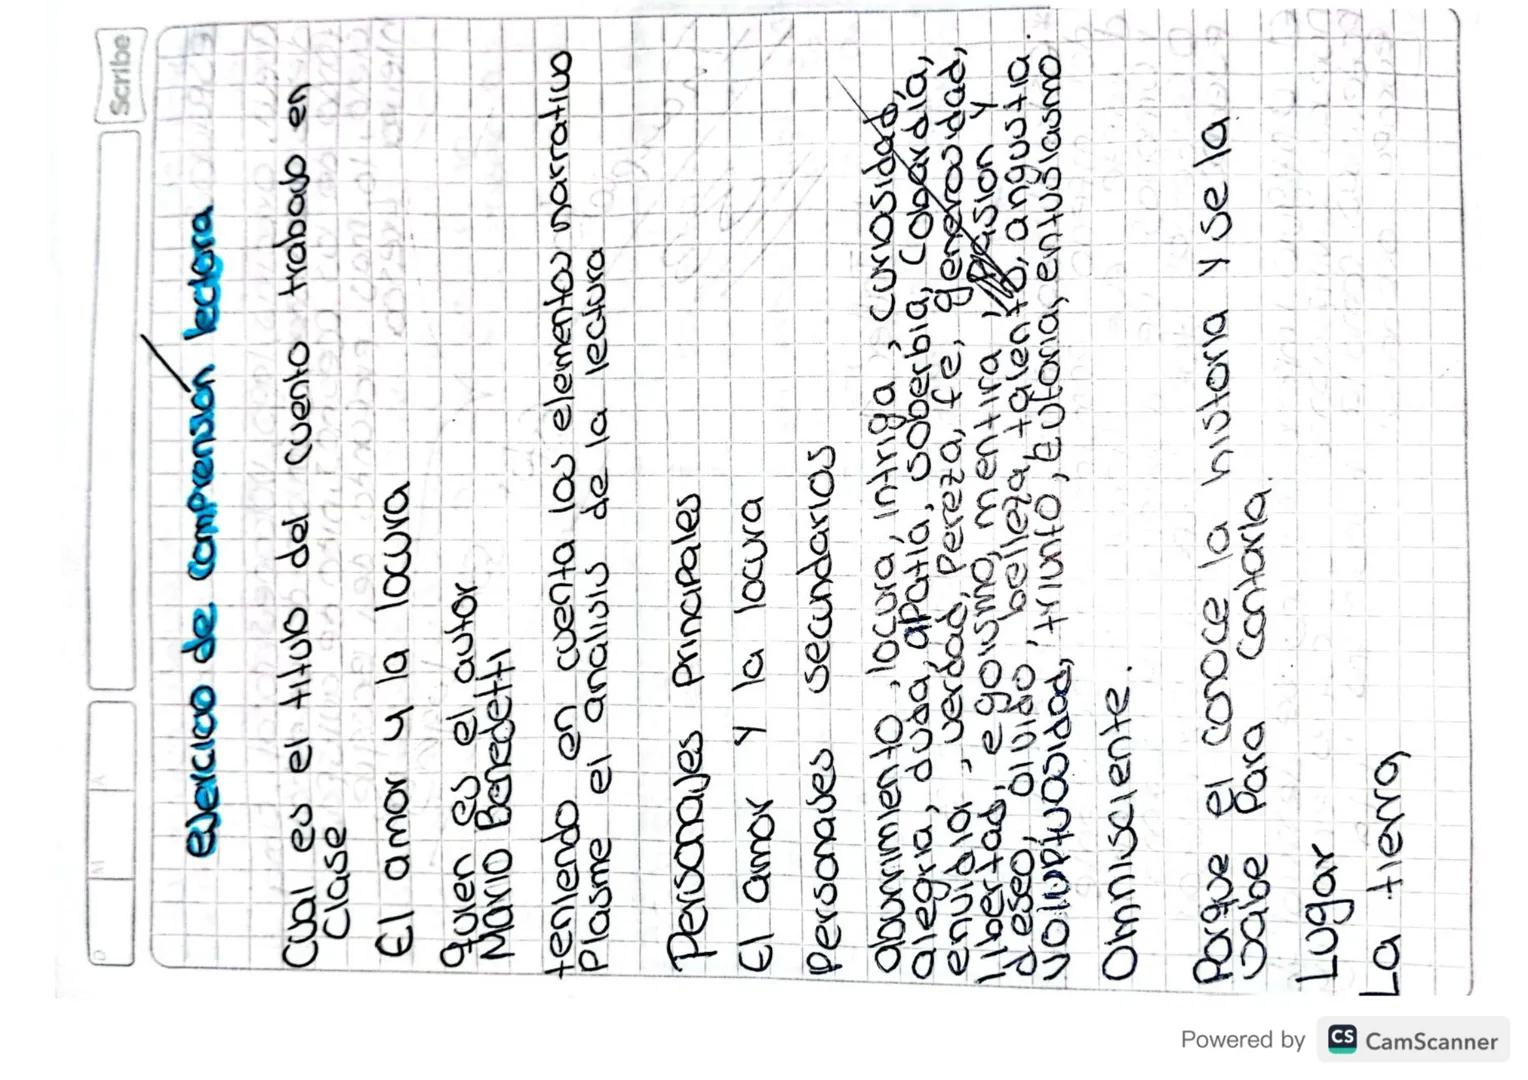 Scribe
D
M
A
ejercicio de comprension lectora
Cual es el titulo del cuento trabajo en
Clase
El amor y la locura
quien es el autor
Mario Benedetti
teniendo en cuenta los elementos narrativo
Plasme el analisis de la lectura
Personajes principales
El amor y la locura
personajes secundarios
aburrimiento, locura, intriga, curiosidad,
alegria, duda, apatía, soberbia, Cobardía,
envidia, verdad, Pereza, fe, generosidad,
libertad, egoismo, mentira, pasion y
deseo, olvido, belleza, talento, angustia.
voluptuosidad, triunfo, Euforia, entusiasmo
Omnisciente.
Porque el conoce la historia y se la
sabe para contarla.
Lugar
La tierra,
Powered by CS CamScanner